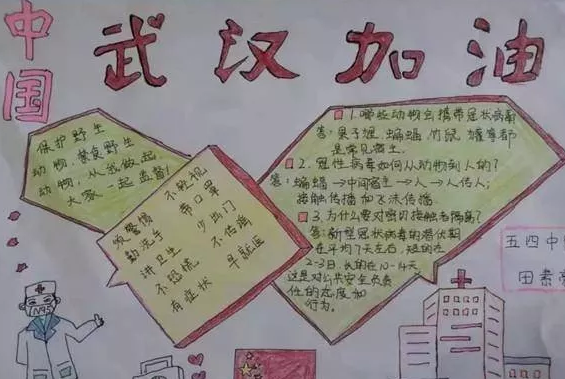 中国
武汉加油
保护野生
动物,禁食野生
动物,从我做起
大家一起监督!
不轻视
戴口罩
少出门
不传谣
早就医
提警惕
勤洗手
讲卫生
不恐慌
有症状
1.哪些动物会携带冠状病毒
答:果子狸、蝙蝠、竹鼠、獾等都
是常见宿主。
2.冠性病毒如何从动物到人的?
答:蝙蝠→中间宿主→人→人传人;
接触传播加飞沫传播
3.为什么要对密切接触者隔离?
答:新型冠状病毒的潜伏期
在平均7天左右,短的在
2-3日,长的在10-14天
这是对公共安全负责
任的态度和
行为。
五四中
田素
N95